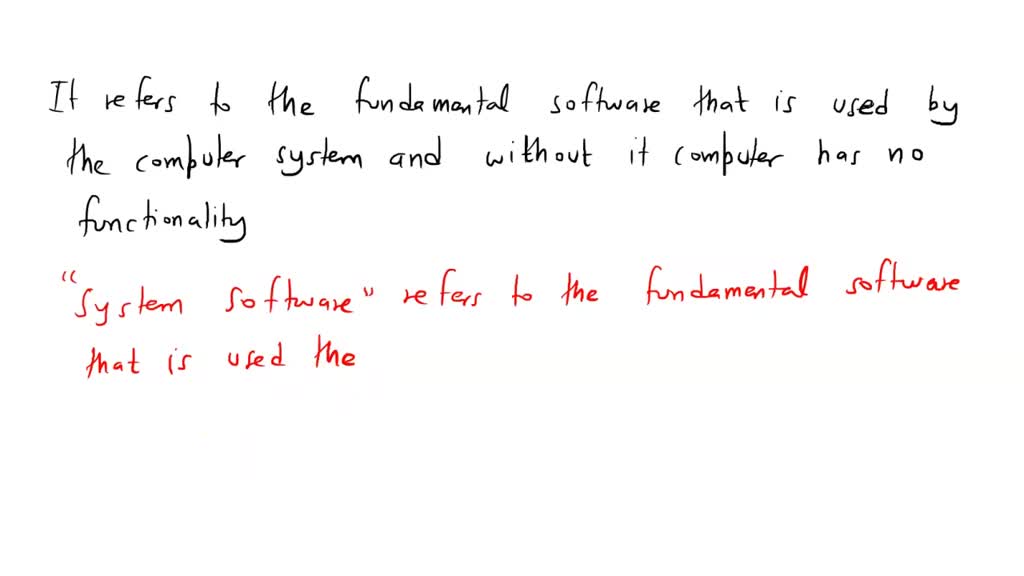 It refers to the fundamental software that is used by
the computer system and without it computer has no
functionality
"System software" refers to the fundamental software
that is used the